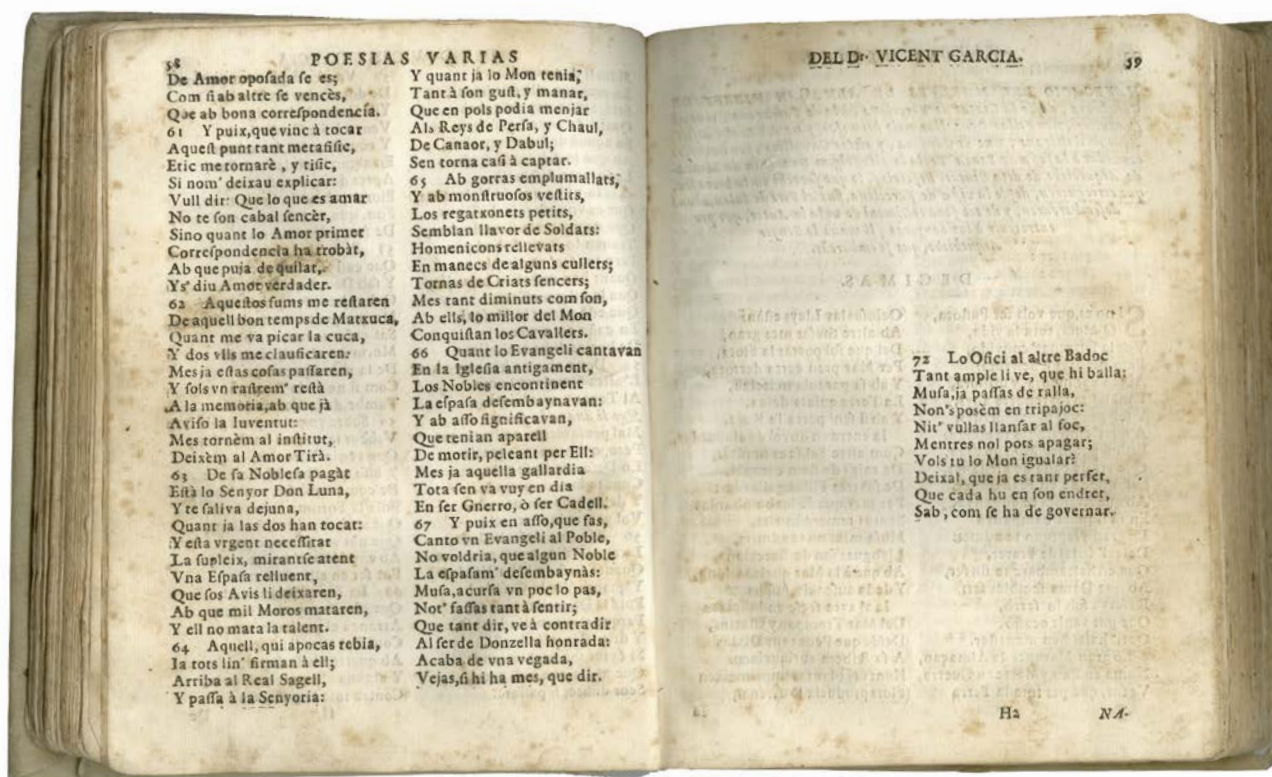 58 POESIAS VARIAS
De Amor oposada ſe es;
Com ſi ab altre ſe vencès,
Que ab bona correſpondencía.
61 Y puix, que vinc à tocar
Aqueſt punt tant metafiſic,
Etic me tornarè , y tiſic,
Si nom' deixau explicar:
Vull dir: Que lo que es amar
No te ſon cabal ſencèr,
Sino quant lo Amor primer
Correſpondencia ha trobàt,
Ab que puja de quilat,
Ys' diu Amor verdader.
62 Aqueſtos fums me reſtaren
De aquell bon temps de Matxuca,
Quant me va picar la cuca,
Y dos vils me clauſicaren:
Mes ja eſtas coſas paſſaren,
Y ſols vn raſtrem' reſtà
A la memoria, ab que jà
Aviſo la Iuventut:
Mes tornèm al inſtitut,
Deixèm al Amor Tirà.
63 De ſa Nobleſa pagàt
Eſtà lo Senyor Don Luna,
Y te ſaliva dejuna,
Quant ja las dos han tocat:
Y eſta vrgent neceſſitat
La ſupleix, mirantſe atent
Vna Eſpaſa relluent,
Que ſos Avis li deixaren,
Ab que mil Moros mataren,
Y ell no mata la talent.
64 Aquell, qui apocas rebia,
Ia tots lin' firman à ell;
Arriba al Real Sagell,
Y paſſa à la Senyoria:
Y quant ja lo Mon tenia,
Tant à ſon guſt, y manar,
Que en pols podia menjar
Als Reys de Perſa, y Chaul,
De Canaor, y Dabul;
Sen torna caſi à captar.
65 Ab gorras emplumallats,
Y ab monſtruoſos veſtits,
Los regatxonets petits,
Semblan llavor de Soldats:
Homenicons rellevats
En manecs de alguns cullers;
Tornas de Criats ſencers;
Mes tant diminuts com ſon,
Ab ells, lo millor del Mon
Conquiſtan los Cavallers.
66 Quant lo Evangeli cantavan
En la Igleſia antigament,
Los Nobles encontinent
La eſpaſa deſembaynavan:
Y ab aſſo ſignificavan,
Que tenian aparell
De morir, peleant per Ell:
Mes ja aquella gallardia
Tota ſen va vuy en dia
En ſer Gnerro, ò ſer Cadell.
67 Y puix en aſſo, que fas,
Canto vn Evangeli al Poble,
No voldria, que algun Noble
La eſpaſam' deſembaynàs:
Muſa, acurſa vn poc lo pas,
Not' faſſas tant à ſentir;
Que tant dir, ve à contradir
Al ſer de Donzella honrada:
Acaba de vna vegada,
Vejas, ſi hi ha mes, que dir.
DEL Dr. VICENT GARCIA. 59
72 Lo Ofici al altre Badoc
Tant ample li ve, que hi balla;
Muſa, ja paſſas de ralla,
Non's posèm en tripajoc:
Nit' vullas llanſar al foc,
Mentres nol pots apagar;
Vols tu lo Mon igualar?
Deixal, que ja es tant perfet,
Que cada hu en ſon endret,
Sab, com ſe ha de governar.
H2 NA-